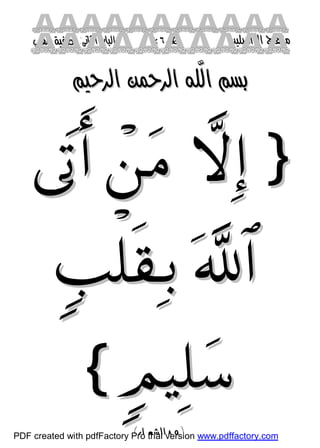 بسم الله الرحمن الرحيم
{ إِلَّا مَنْ أَتَى
ٱللَّهَ بِقَلْبٍ
سَلِيمٍ }
PDF created with pdfFactory Pro trial version www.pdffactory.com